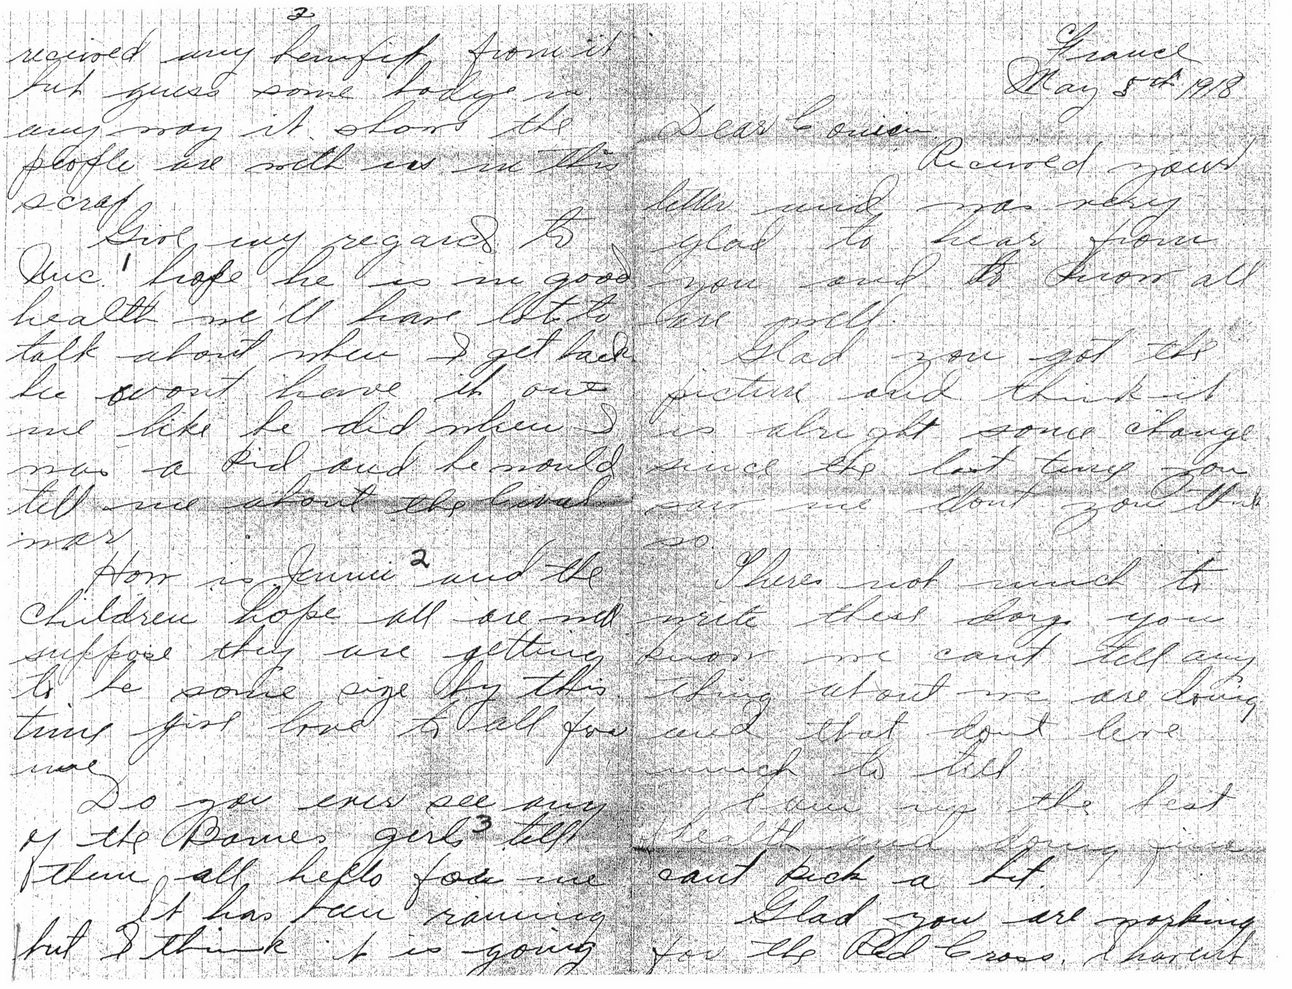 France
May 5th 1918
Dear Cousin
Recieved your
letter and was very
glad to hear from
you and to know all
are well.
Glad you got the
picture and think it
is alright some change
since the last time you
saw me dont you think
so.
Theres not much to
write these days you
know we cant tell any
thing about we are doing
and that dont leve
much to tell
I am in the best
health and doing fine
cant kick a bit.
Glad you are working
for the Red Cross. I havent
2
recieved any benifit from it
but guess some bodys in
any way it shows the
people are with us in this
scrap
Give my regards to
Unc. 1 hope he is in good
health we'll have lots to
talk about when I get back
he wont have it on
me like he did when I
was a kid and he would
tell me about the Cival
war
How is Jennie 2 and the
children hope all are well
suppose they are getting
to be some size by this
time give love to all for
me
Do you ever see any
of the Barnes girls 3 tell
them all hello for me
It has been raining
but I think it is going